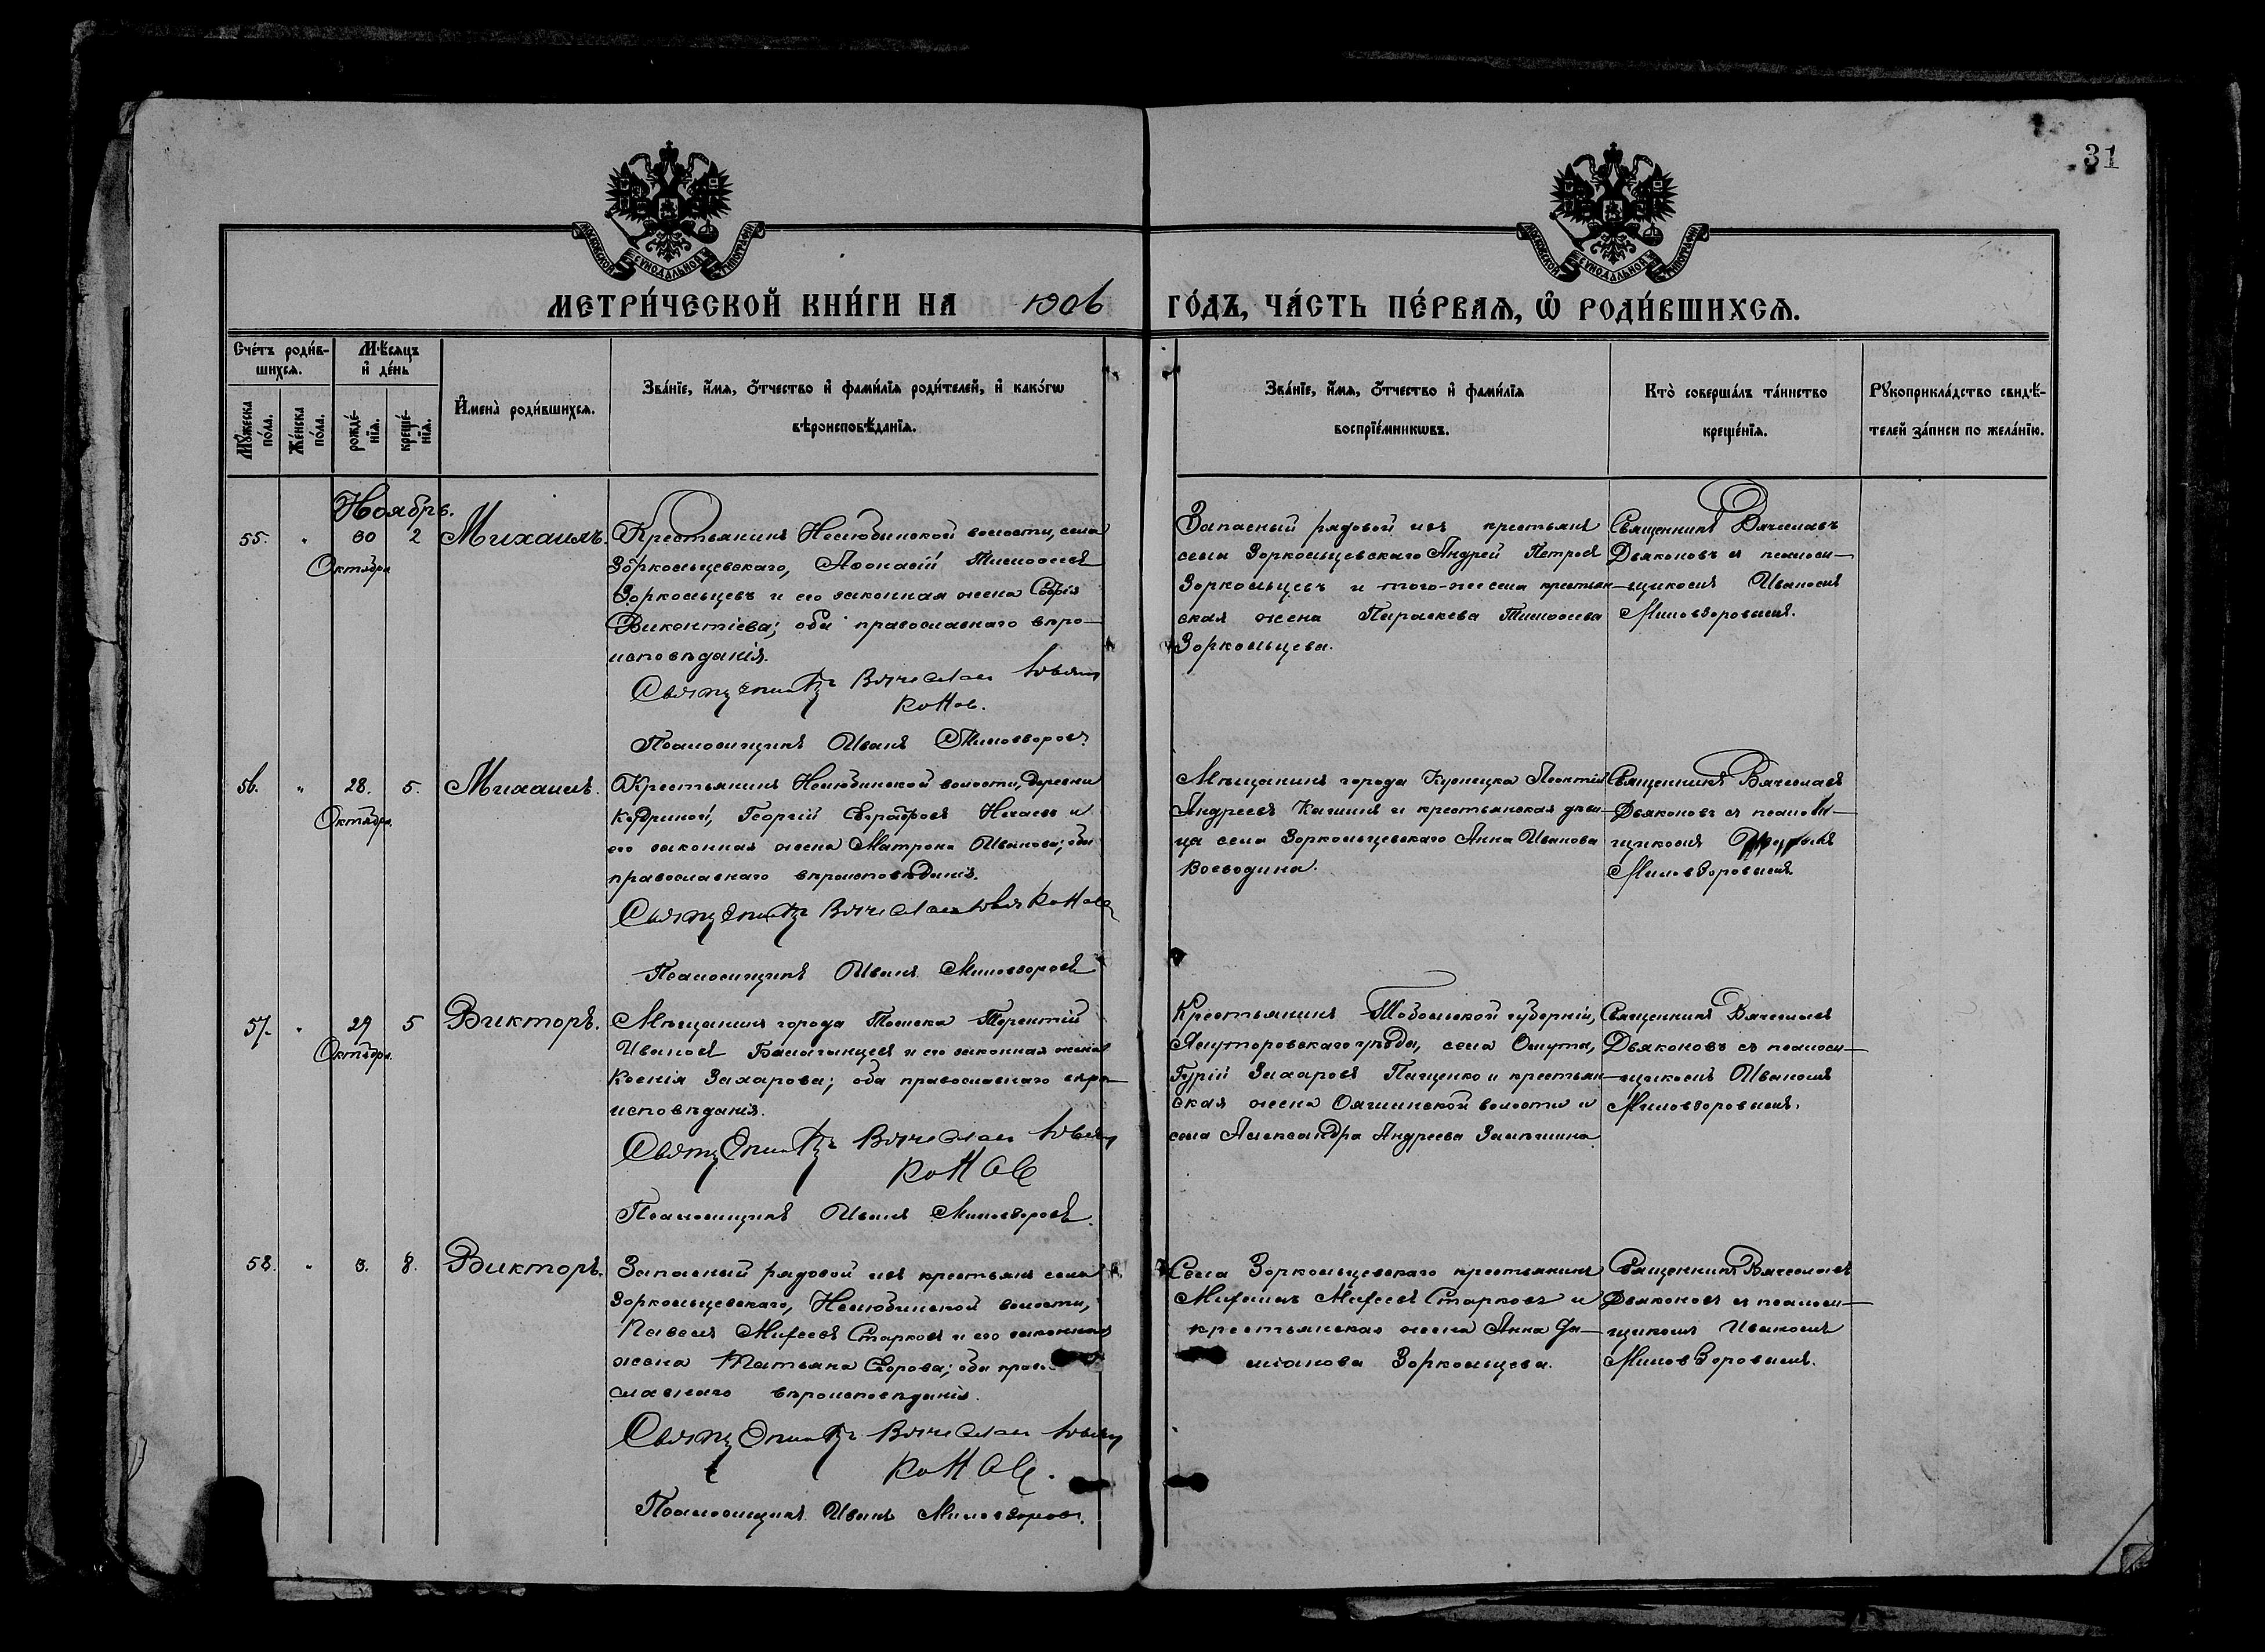 31
МОСКОВСКОЙ СѴНОДАЛЬНОЙ ТИПОГРАФІИ
МОСКОВСКОЙ СѴНОДАЛЬНОЙ ТИПОГРАФІИ
МЕТРИ́ЧЕСКОЙ КНИ́ГИ НА 1906 ГО́ДЪ, ЧА́СТЬ ПЕ́РВАѦ, Ѿ РОДИ́ВШИХСѦ.
Сче́тъ роди́в-
шихсѧ.
Мꙋ́жеска
по́ла.
Же́нска
по́ла.
Мѣ́сѧцъ
и҆ де́нь
рожде́-
нїѧ.
креще́-
нїѧ.
И҆мена̀ роди́вшихсѧ.
Зва́нїе, и҆́мѧ, ѻ҆́тчество и҆ фами́лїѧ роди́телей, и҆ како́гѡ
вѣроисповѣ́данїѧ.
Зва́нїе, и҆́мѧ, ѻ҆́тчество и҆ фами́лїѧ
воспрїе́мникѡвъ.
Кто̀ соверша́лъ та́инство
креще́нїѧ.
Рꙋкоприкла́дство свидѣ́-
телей за́писи по жела́нїю.
Ноябрь.
55. " 30 2 Михаилъ.
Октября
Крестьянинъ Нелюбинской волости, села
Зоркольцевскаго, Аѳонасій Тимоѳеевъ
Зоркольцевъ и его законная жена Софія
Викентіева; оба православнаго вѣро-
исповѣданія.
Священникъ Вячеслав Дьяконов.
Псаломщикъ Иванъ Миловзоровъ.
Запасный рядовой изъ крестьянъ
села Зоркольцевскаго Андрей Петровъ
Зоркольцевъ и того-же села крестьян-
ская жена Параскева Тимоѳеева
Зоркольцева.
Священникъ Вячеславъ
Дьяконовъ съ псалом-
щикомъ Иваномъ
Миловзоровымъ.
56. " 28. 5. Михаилъ.
Октября.
Крестьянинъ Нелюбинской волости, деревни
Кудриной, Георгій Евграфовъ и
его законная жена Матрона Иванова; оба
православнаго вѣроисповѣданія.
Священникъ Вячеслав Дьяконов
Псаломщикъ Иванъ Миловзоровъ
Мѣщанинъ города Кузнецка Леонтій
Андреевъ и крестьянская дѣви-
ца села Зоркольцевскаго Анна Иванова
Воеводина.
Священникъ Вячеславъ
Дьяконовъ съ псалом-
щикомъ
Миловзоровымъ.
57. " 29 5 Викторъ.
Октября.
Мѣщанинъ города Томска Терентій
Ивановъ и его законная жена
Ксенія Захарова; оба православнаго вѣро-
исповѣданія.
Священникъ Вячеслав Дьяконов
Псаломщикъ Иванъ Миловзоровъ.
Крестьянинъ Тобольской губерніи,
Ялуторовскаго уѣзда, села Омута,
Гурій Захаровъ Пащенко и крестьян-
ская жена Ояшинской волости и
села Александра Андреева
Священникъ Вячеславъ
Дьяконовъ съ псалом-
щикомъ Иваномъ
Миловзоровымъ.
58. " 3. 8. Викторъ.
Запасный рядовой изъ крестьянъ села
Зоркольцевскаго, Нелюбинской волости,
Павелъ Михеевъ Старковъ и его законная
жена Татьяна Егорова; оба право-
славнаго вѣроисповѣданія.
Священникъ Вячеслав Дьяконов.
Псаломщикъ Иванъ Миловзоровъ.
Села Зоркольцевскаго крестьянинъ
Михаилъ Михеевъ Старковъ и
крестьянская жена Анна Да-
міанова Зоркольцева.
Священникъ Вячеславъ
Дьяконовъ съ псалом-
щикомъ Иваномъ
Миловзоровымъ.